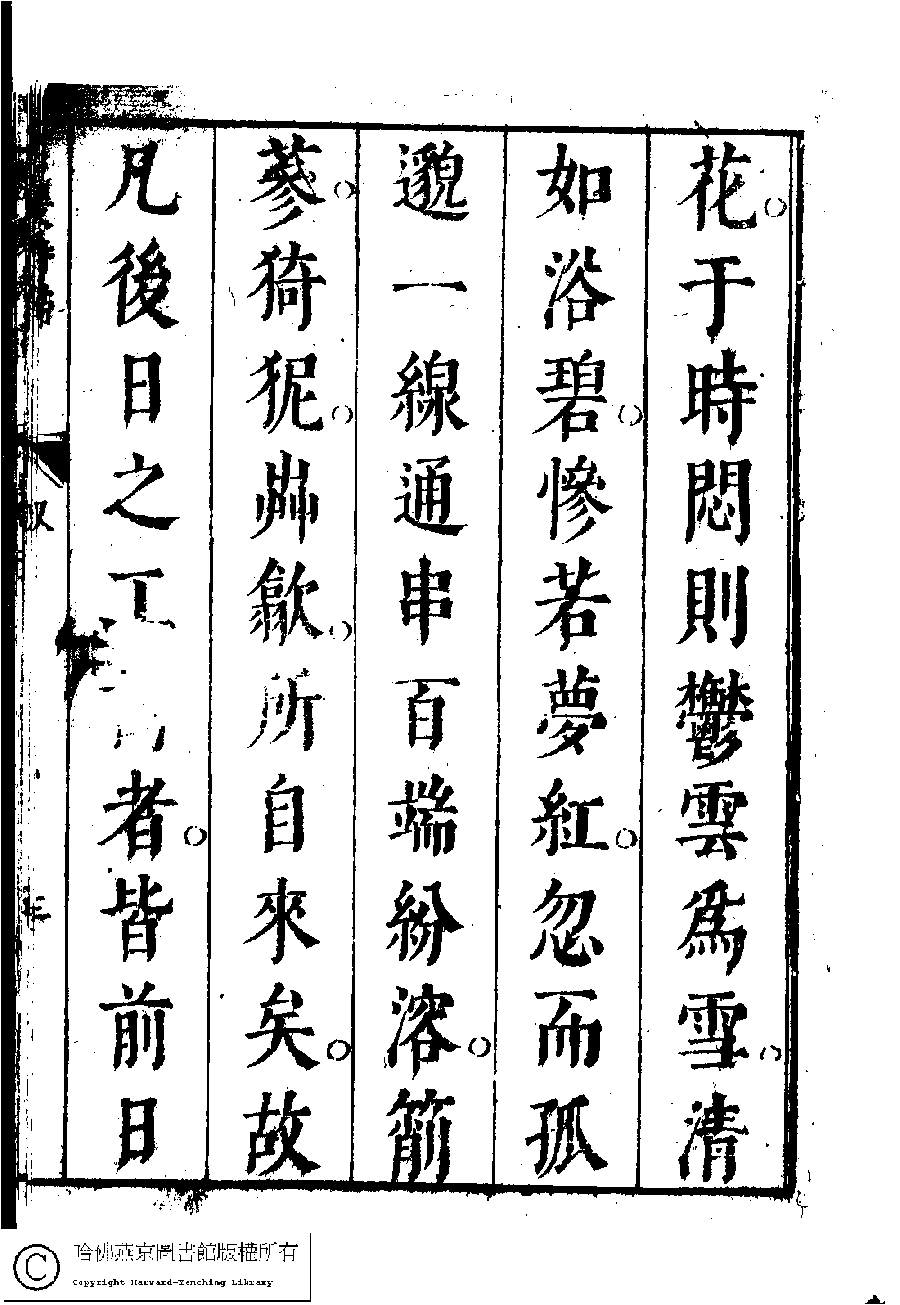 花于時悶則鬱雲為雪清
如浴碧慘若夢紅忽而孤
邈一線通串百端紛溶箾
蔘猗狔芔歙所自來矣故
凡後日之工者皆前日
叙
三
哈佛燕京圖書館版權所有
Copyright Harvard-Yenching Library